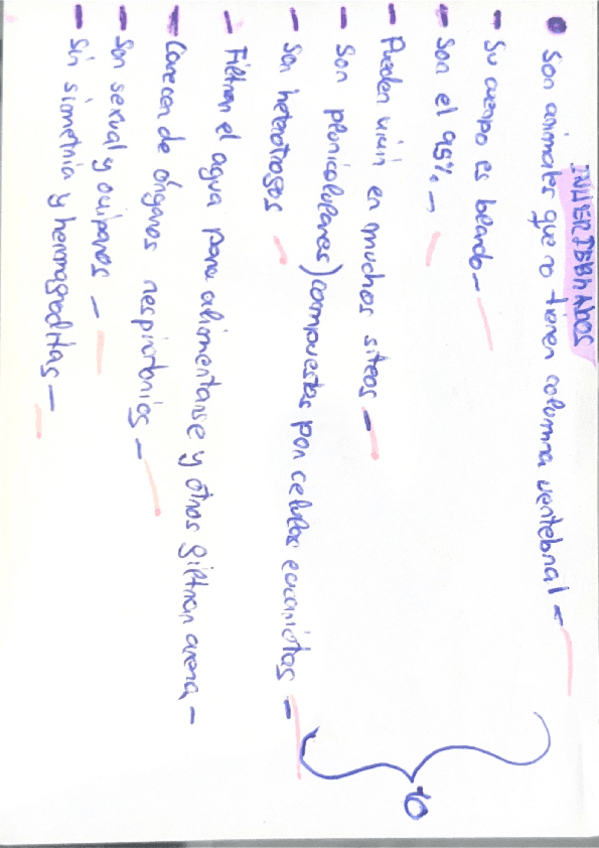 INVERTEBRADOS
Son animales que no tienen columna vertebral -
- Su cuerpo es blando -
- Son el 95% -
- Pueden vivir en muchos siteos -
- Son pluricelulares) compuestas por celulas eucariotas -
- Son heterotrofos
- Filtran el agua para alimentarse y otros filtran arena -
- Carecen de órganos respiratorios -
- Son sexual y oviparos -
- Sin simetria y hermafroditas -
10